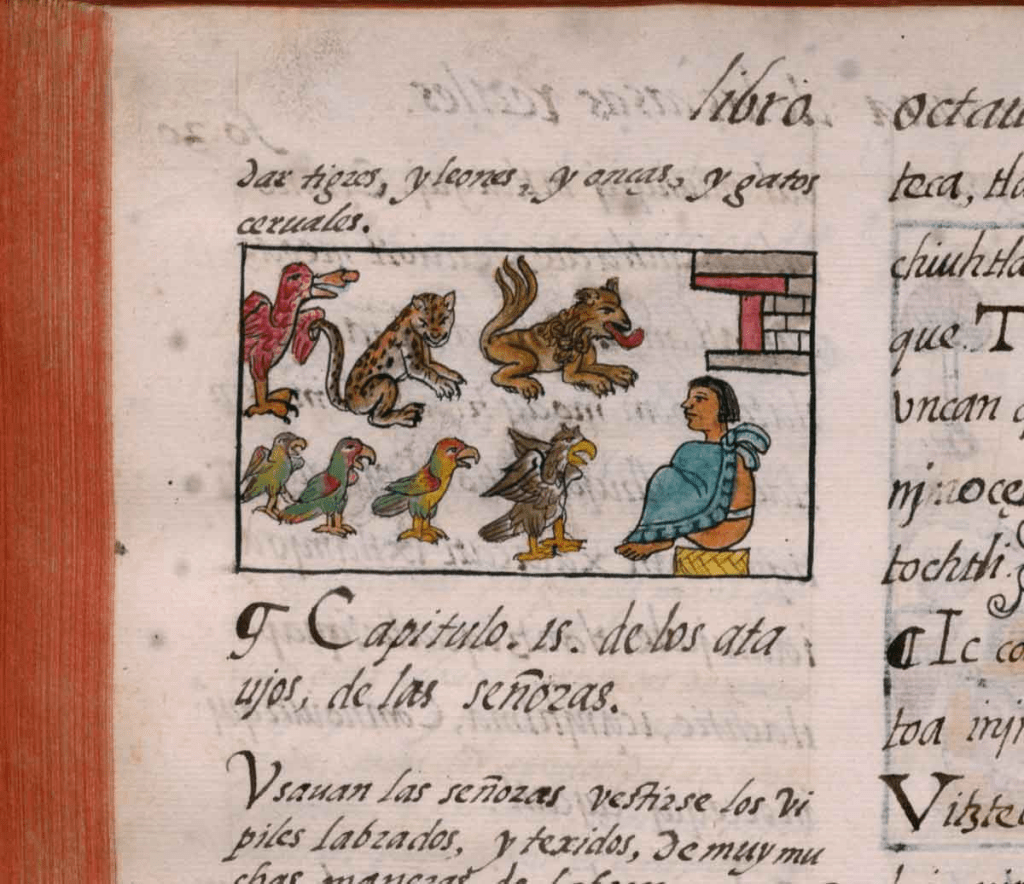 libro
dar tigres, y leones, y onças, y gatos
ceruales.
¶ Capitulo. 15. de los ata
ujos, de las señoras.
Vsauan las señoras vestirse los vi
piles labrados, y texidos, de muy mu
chas maneras de
octau
teca, tla
chiuhtla
que. T
vncan
tochtli.
¶ Ic co
toa inin
Vitzte